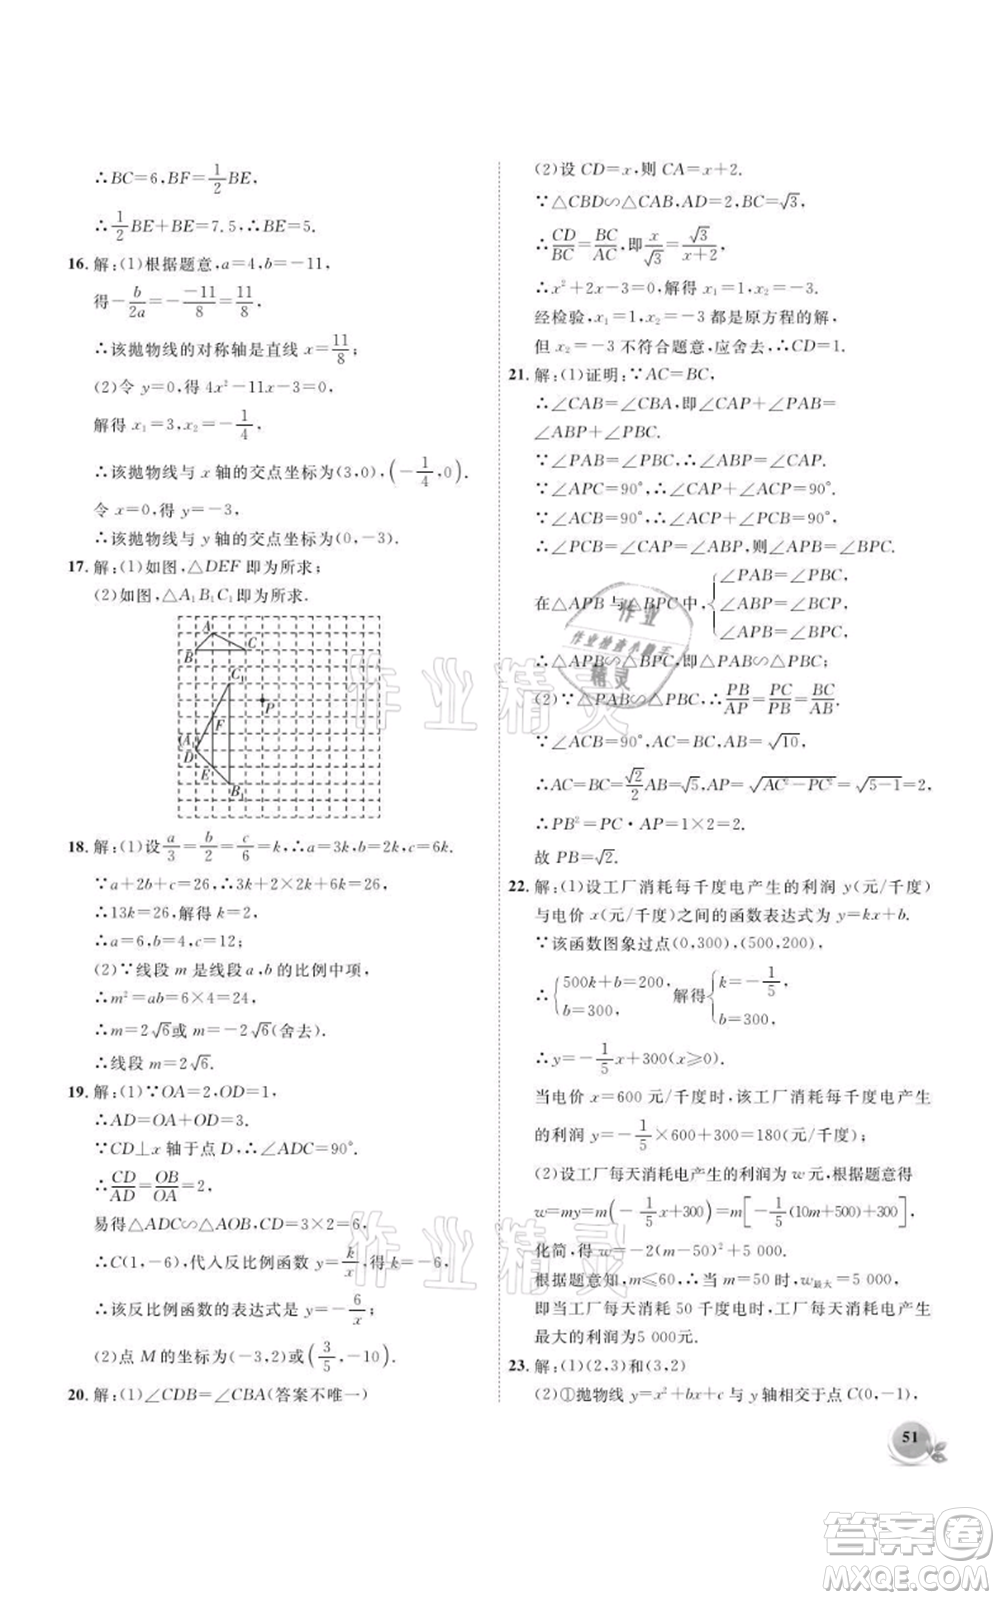 ∴BC=6,BF=1/2BE,
∴1/2BE+BE=7.5,∴BE=5.
16.解:(1)根据题意,a=4,b=-11,
得-b/2a=-(-11)/8=11/8,
∴该抛物线的对称轴是直线 x=11/8;
(2)令 y=0,得 4x²-11x-3=0,
解得 x₁=3,x₂=-1/4,
∴该抛物线与 x 轴的交点坐标为(3,0),(-1/4,0).
令 x=0,得 y=-3,
∴该抛物线与 y 轴的交点坐标为(0,-3).
17.解:(1)如图,△DEF 即为所求;
(2)如图,△A₁B₁C₁即为所求.
A
B
C
C₁
P
F
(A₁)
D
E
B₁
18.解:(1)设a/3=b/2=c/6=k,∴a=3k,b=2k,c=6k.
∵a+2b+c=26,∴3k+2×2k+6k=26,
∴13k=26,解得 k=2,
∴a=6,b=4,c=12;
(2)∵线段 m 是线段 a,b 的比例中项,
∴m²=ab=6×4=24,
∴m=2√6或 m=-2√6(舍去).
∴线段 m=2√6.
19.解:(1)∵OA=2,OD=1,
∴AD=OA+OD=3.
∵CD⊥x 轴于点 D,∴∠ADC=90°.
∴CD/AD=OB/OA=2,
易得△ADC∽△AOB,CD=3×2=6,
∴C(1,-6),代入反比例函数 y=k/x,得 k=-6,
∴该反比例函数的表达式是 y=-6/x;
(2)点 M 的坐标为(-3,2)或(3/5,-10).
20.解:(1)∠CDB=∠CBA(答案不唯一)
(2)设 CD=x,则 CA=x+2.
∵△CBD∽△CAB,AD=2,BC=√3,
∴CD/BC=BC/AC,即x/√3=√3/(x+2),
∴x²+2x-3=0,解得 x₁=1,x₂=-3.
经检验,x₁=1,x₂=-3 都是原方程的解,
但 x₂=-3 不符合题意,应舍去,∴CD=1.
21.解:(1)证明:∵AC=BC,
∴∠CAB=∠CBA,即∠CAP+∠PAB=
∠ABP+∠PBC.
∵∠PAB=∠PBC,∴∠ABP=∠CAP.
∵∠APC=90°,∴∠CAP+∠ACP=90°.
∵∠ACB=90°,∴∠ACP+∠PCB=90°,
∴∠PCB=∠CAP=∠ABP,则∠APB=∠BPC.
在△APB 与△BPC中,{∠PAB=∠PBC,
∠ABP=∠BCP,
∠APB=∠BPC,
∴△APB∽△BPC,即△PAB∽△PBC;
(2)∵△PAB∽△PBC,∴PB/AP=PC/PB=BC/AB.
∵∠ACB=90°,AC=BC,AB=√10,
∴AC=BC=√2/2AB=√5,AP=√(AC²-PC²)=√(5-1)=2,
∴PB²=PC·AP=1×2=2.
故 PB=√2.
22.解:(1)设工厂消耗每千度电产生的利润 y(元/千度)
与电价 x(元/千度)之间的函数表达式为 y=kx+b.
∵该函数图象过点(0,300),(500,200),
∴{500k+b=200, b=300, 解得{k=-1/5, b=300,
∴y=-1/5x+300(x≥0).
当电价 x=600 元/千度时,该工厂消耗每千度电产生
的利润 y=-1/5×600+300=180(元/千度);
(2)设工厂每天消耗电产生的利润为 w 元,根据题意得
w=my=m(-1/5x+300)=m[-1/5(10m+500)+300]
化简,得 w=-2(m-50)²+5 000.
根据题意知,m≤60,∴当 m=50 时,w最大=5 000,
即当工厂每天消耗 50 千度电时,工厂每天消耗电产生
最大的利润为5 000元.
23.解:(1)(2,3)和(3,2)
(2)①抛物线 y=x²+bx+c 与 y 轴相交于点 C(0,-1),
51
作业精灵
作业
作业检查小能手
精灵
作业精灵
答案卷
MXQE.COM